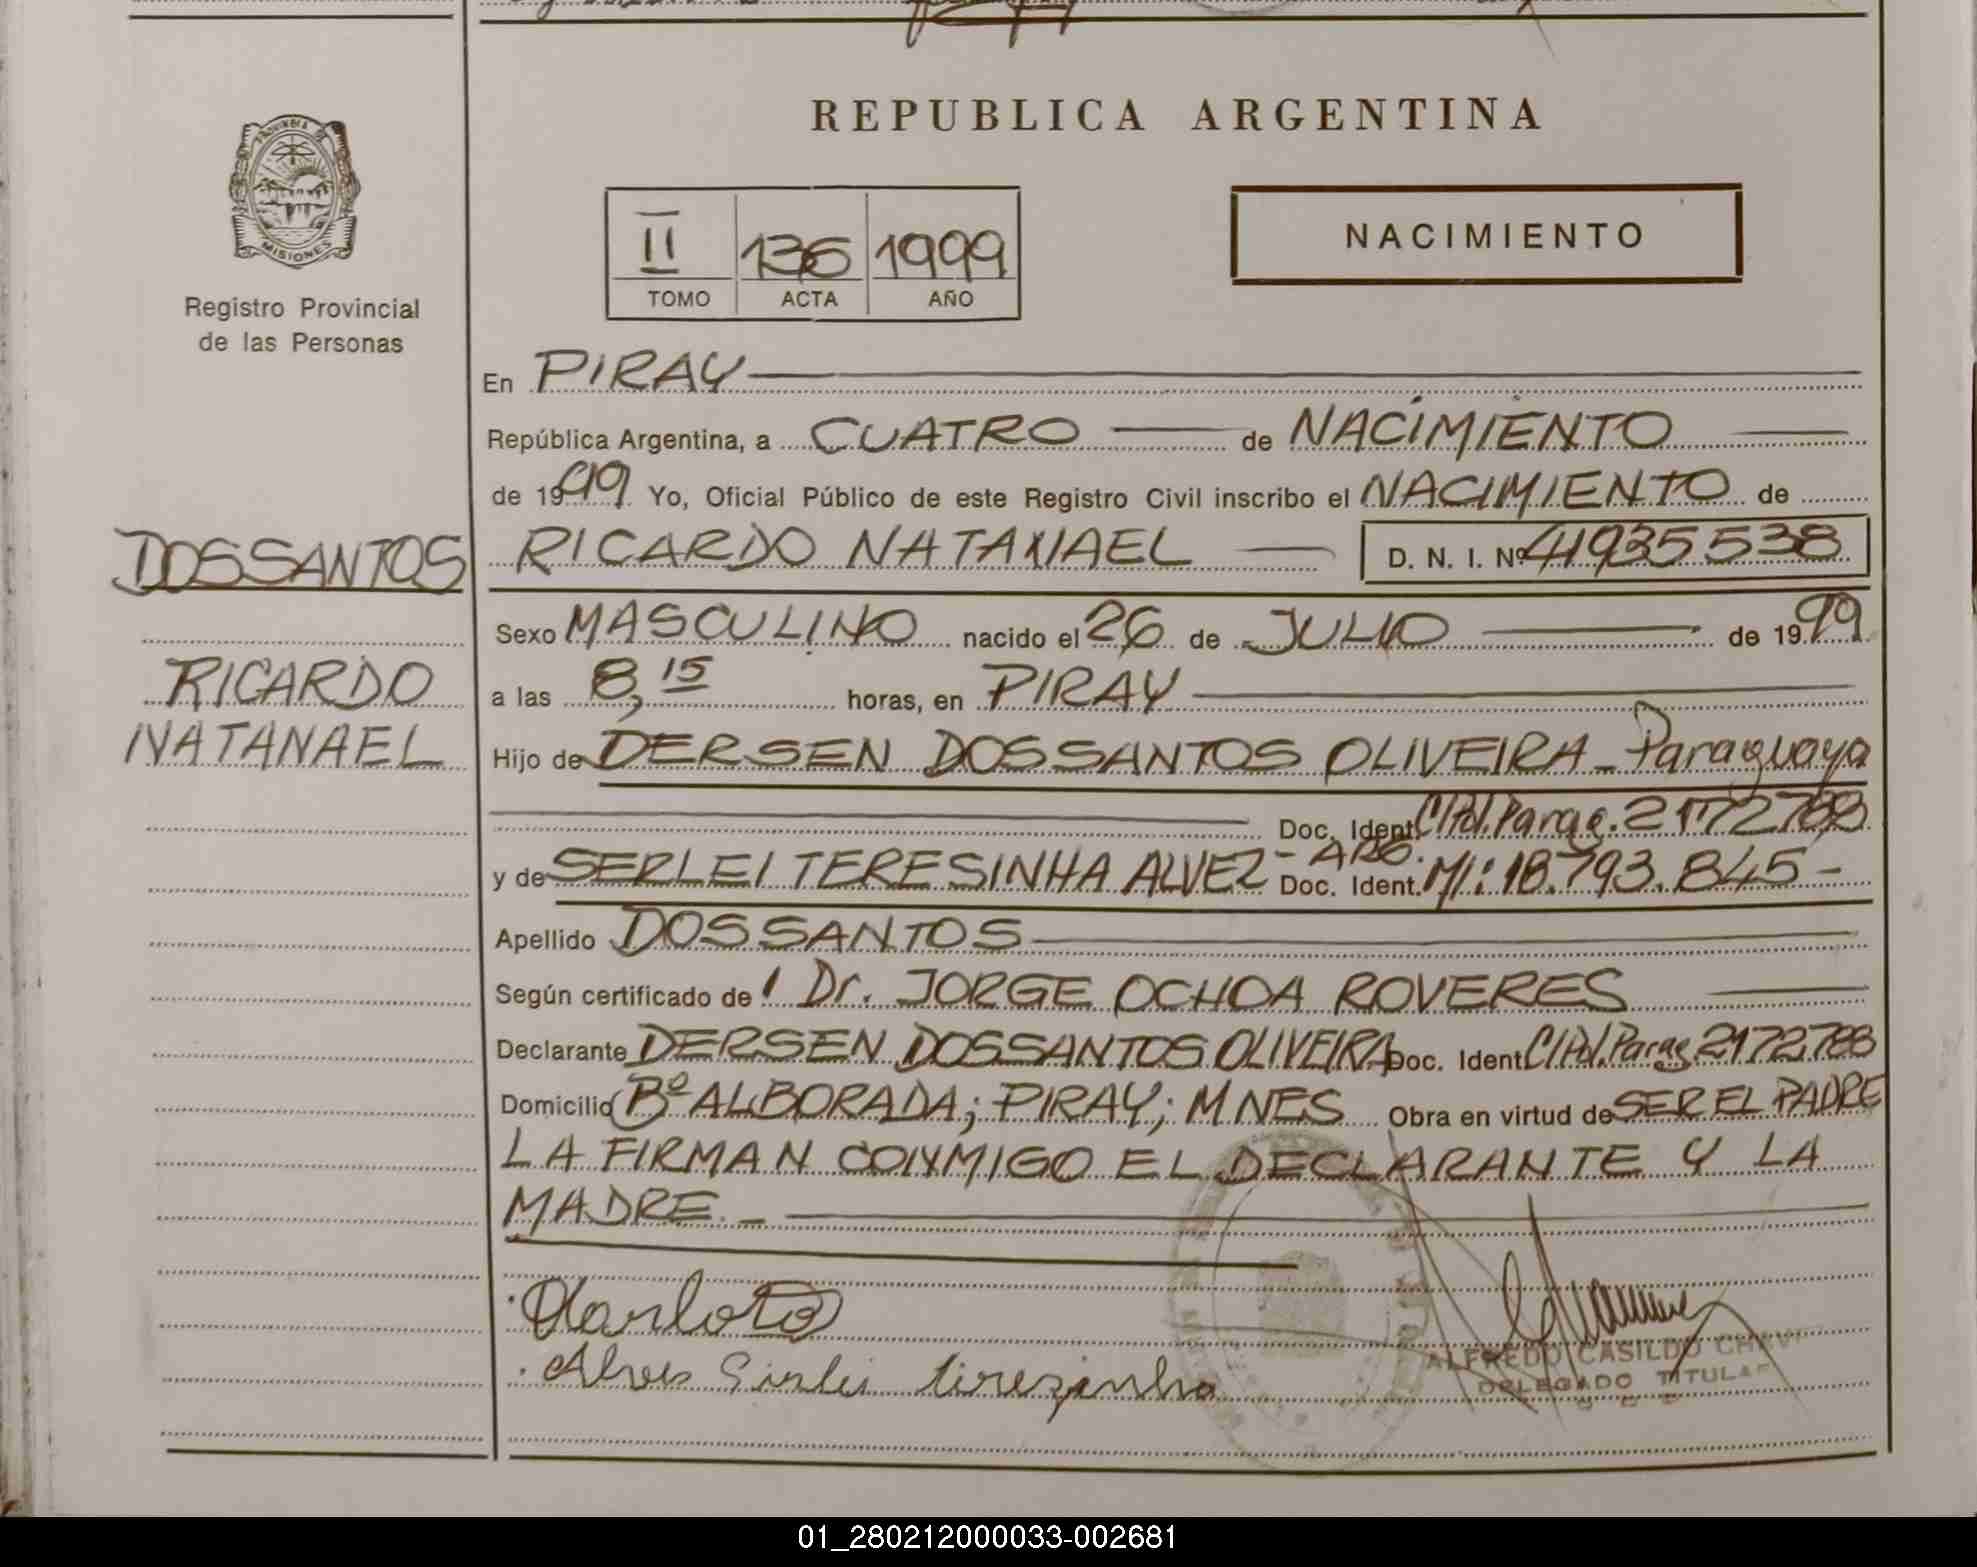 REPUBLICA ARGENTINA
PROVINCIA DE
MISIONES
Registro Provincial
de las Personas
II 136 1999
TOMO ACTA AÑO
NACIMIENTO
En PIRAY
República Argentina, a CUATRO de NACIMIENTO
de 1999 Yo, Oficial Público de este Registro Civil inscribo el NACIMIENTO de
DOSSANTOS
RICARDO NATANAEL D. N. I. Nº 41935538
Sexo MASCULINO nacido el 26 de JULIO de 1999
RICARDO
NATANAEL
a las 8,15 horas, en PIRAY
Hijo de DERSEN DOSSANTOS OLIVEIRA - Paraguaya
Doc. Ident. C/Pol. Parag. 2172788
y de SERLEI TERESINHA ALVEZ - ARG. Doc. Ident. MI: 18.793.845 -
Apellido DOSSANTOS
Según certificado de Dr. JORGE OCHOA ROVERES
Declarante DERSEN DOSSANTOS OLIVEIRA Doc. Ident. C/Pol. Parag 2172788
Domicilio Bº ALBORADA; PIRAY; MNES Obra en virtud de SER EL PADRE
LA FIRMAN CONMIGO EL DECLARANTE Y LA
MADRE. -
Alves Sirlei tirezinha
ALFREDO CASILDO
DELEGADO TITULAR
01_280212000033-002681